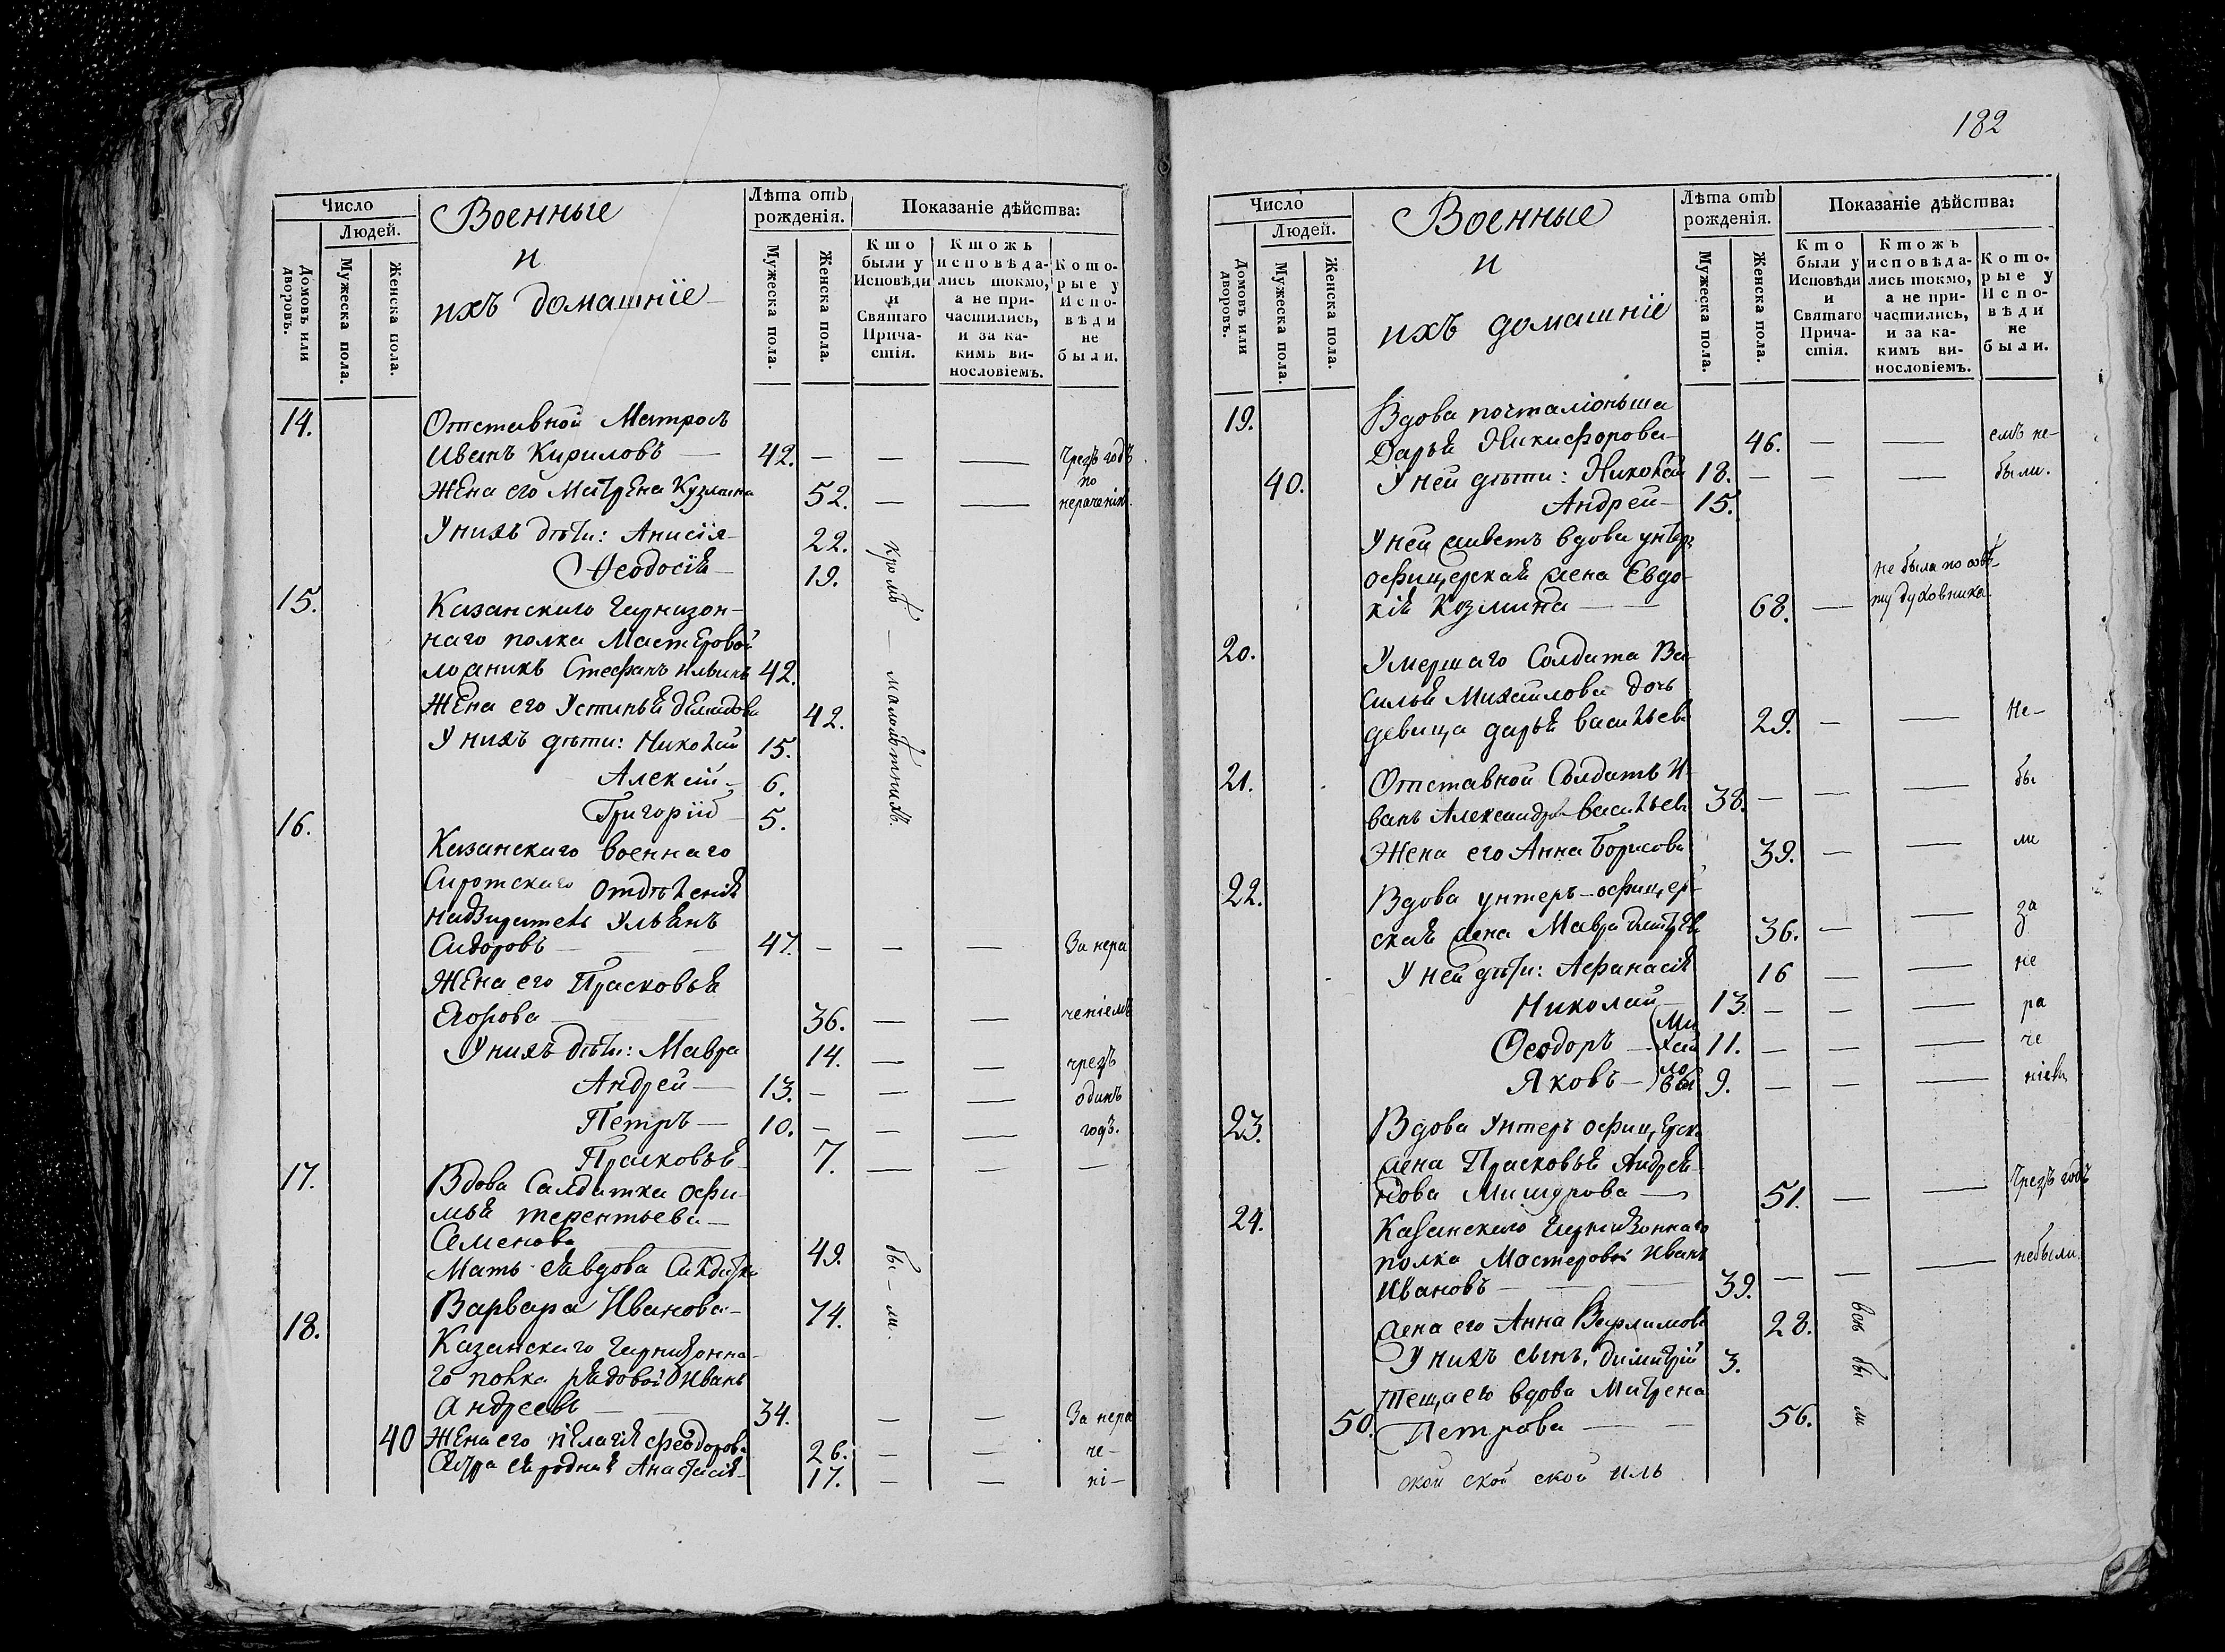 Число
Людей.
Домовъ или дворовъ.
Мужеска пола.
Женска пола.
Военные
и
ихъ домашніе
Лѣта отъ рожденія.
Мужеска пола.
Женска пола.
Показаніе дѣйства:
Кто были у Исповѣди и Святаго Причастія.
Ктожъ исповѣдались токмо, а не причастились, и за какимъ винословіемъ.
Которые у Исповѣди не были.
14. Отставной Матрозъ
Иванъ Кириловъ — 42. — — — Чрезъ годъ
по
Жена его Матрена Кузмина 52. — — нераченію.
У нихъ дѣти: Анисія 22.
Ѳеодосія 19.
кромѣ — малолѣтнихъ.
15. Казанскаго Гарнизон-
наго полка Мастеровой
ложникъ Стефанъ Ильинъ 42.
Жена его Устинья Демидова 42.
У нихъ дѣти: Николай 15.
Алексѣй 6.
Григорій 5.
16. Казанскаго военнаго
Сиротскаго отдѣленія
надзиратель Ульянъ
Сидоровъ 47. — — — За нера
Жена его Прасковья
Егорова 36. — — ченіемъ
У нихъ дѣти: Мавра 14. — — чрезъ
Андрей — 13. — — — одинъ
Петръ — 10. — — — годъ.
Прасковья 7. — — —
17. Вдова Салдатка Ефи-
мья Терентьева
Семенова 49.
бы — ли.
Мать ея вдова Салдатка
Варвара Иванова 74.
18. Казанскаго Гарнизонна-
го полка рядовой Иванъ
Андреевъ 34. — — За нера
40 Жена его Пелагія Феодорова 26. — — че-
Сестра ея родная Анастасія 17. — — ні-
182
Число
Людей.
Домовъ или дворовъ.
Мужеска пола.
Женска пола.
Военные
и
ихъ домашніе
Лѣта отъ рожденія.
Мужеска пола.
Женска пола.
Показаніе дѣйства:
Кто были у Исповѣди и Святаго Причастія.
Ктожъ исповѣдались токмо, а не причастились, и за какимъ винословіемъ.
Которые у Исповѣди не были.
19. Вдова почталіонша
Дарья Никифорова 46. — — емъ не-
40. У ней дѣти: Николай 18. — — — были.
Андрей 15.
У ней живетъ вдова унтеръ
офицерская жена Евдо-
кія Козмина 68. — не была по совѣ-
ту духовника.
20. Умершаго Солдата Ва-
силья Михайлова дочь
девица Дарья Васильева 29. — — не-
21. Отставной Солдатъ И-
ванъ Александровъ Васильевъ 38. — — — бы
Жена его Анна Борисова 39. — — ли
22. Вдова унтеръ-офицер-
ская жена Мавра Дмитрева 36. — — за
У ней дѣти: Афанасія 16 — — не
Николай 13. — — — ра
Ѳеодоръ — 11. — — — че
Яковъ — 9. — — — ніемъ
Михайловы
23. Вдова Унтеръ офицерска
жена Прасковья Андрея-
нова Мишурова 51. — — Чрезъ годъ
24. Казанскаго Гарнизоннаго
полка Мастеровой Иванъ
Ивановъ 39. — — — не были.
жена его Анна Варламова 28.
всѣ бы ли
У нихъ сынъ. Димитрій 3.
Теща его вдова Матрена
50. Петрова 56.
ской ской ской иль